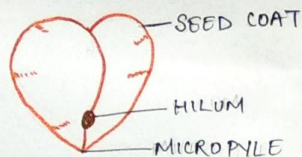 SEED COAT
HILUM
MICROPYLE